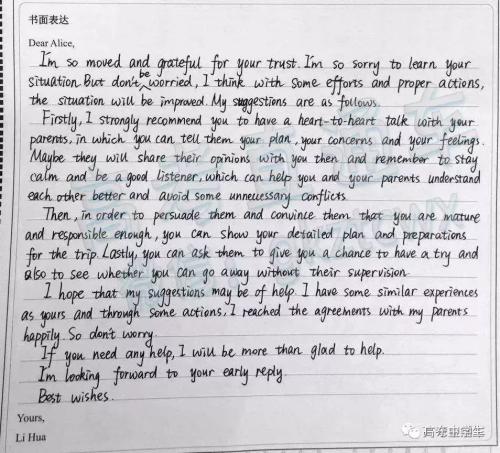 书面表达
Dear Alice,
I'm so moved and grateful for your trust. I'm so sorry to learn your
situation. But don't be worried, I think with some efforts and proper actions,
the situation will be improved. My suggestions are as follows.
Firstly, I strongly recommend you to have a heart-to-heart talk with your
parents, in which you can tell them your plan, your concerns and your feelings.
Maybe they will share their opinions with you then and remember to stay
calm and be a good listener, which can help you and your parents understand
each other better and avoid some unnecessary conflicts.
Then, in order to persuade them and convince them that you are mature
and responsible enough, you can show your detailed plan and preparations
for the trip. Lastly, you can ask them to give you a chance to have a try and
also to see whether you can go away without their supervision.
I hope that my suggestions may be of help. I have some similar experiences
as yours and through some actions, I reached the agreements with my parents
happily. So don't worry.
If you need any help, I will be more than glad to help.
I'm looking forward to your early reply.
Best wishes.
Yours,
Li Hua